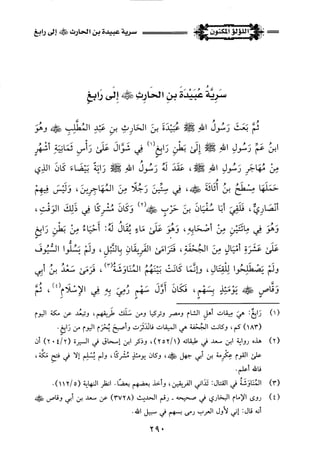 اللؤلؤ المكنون
سرية عبيدة بن الحارث ﵁ إلى رابغ
سَرِيَّةُ عُبَيْدَةَ بنِ الحَارِثِ ﵁ إِلَى رَابِغٍ
ثُمَّ بَعَثَ رَسُولُ اللهِ ﷺ عُبَيْدَةَ بنَ الحَارِثِ بنِ عَبْدِ المُطَّلِبِ ﵁ وهُوَ
ابنُ عَمِّ رَسُولِ اللهِ ﷺ إِلَى بَطْنِ رَابِغٍ(١) فِي شَوَّالَ عَلَى رَأْسِ ثَمَانِيَةِ أشْهُرٍ
مِنْ مُهَاجَرِ رَسُولِ اللهِ ﷺ، عَقَدَ لَهُ رَسُولُ اللهِ ﷺ رَايَةً بَيْضَاءَ كَانَ الذِي
حَمَلَهَا مِسْطَحُ بنُ أُثَاثَةَ ﵁، فِي سِتِّينَ رَجُلًا مِنَ المُهَاجِرِينَ، وَلَيْسَ فِيهِمْ
أنْصَارِيٌّ، فَلَقِيَ أبَا سُفْيَانَ بنَ حَرْبٍ ﵁(٢) وَكَانَ مُشْرِكًا فِي ذَلِكَ الوَقْتِ،
وَهُوَ فِي مِائَتَيْنِ مِنْ أصْحَابِهِ، وَهُوَ عَلَى مَاءٍ يُقَالُ لَهُ: أحْيَاءُ مِنْ بَطْنِ رَابِغٍ
عَلَى عَشَرَةِ أمْيَالٍ مِنَ الجُحْفَةِ، فَتَرَامَى الفَرِيقَانِ بِالنَّبْلِ، وَلَمْ يَسُلُّوا السُّيُوفَ
وَلَمْ يَصْطَلِحُوا لِلْقِتَالِ، وإِنَّمَا كَانَتْ بَيْنَهُمُ المُنَاوَشَةُ(٣)، فَرَمَى سَعْدُ بنُ أبِي
وَقَّاصٍ ﵁ يَوْمَئِذٍ بِسَهْمٍ، فَكَانَ أوَّلَ سَهْمٍ رُمِيَ بِهِ فِي الإِسْلَامِ(٤)، ثُمَّ
(١) رَابغ: هيَ ميقات أهل الشام ومصر وتركيا ومن سَلَكَ طريقهم، وتبعد عن مكة اليوم
(١٨٣) كم، وكانت الجُحْفة هي الميقات فاندَثَرَتْ وأصبحَ يُحْرِمُ اليوم من رَابغ.
(٢) هذه رواية ابن سعد في طبقاته (٢٥٢/١)، وذكر ابن إسحاق في السيرة (٢٠٤/٢) أن
على القوم عِكرمة بن أبي جهل ﵁، وكان يومئذٍ مُشركًا، ولم يُسْلِم إلا في فتح مكة،
فالله أعلم.
(٣) المُنَاوَشَةُ في القتال: تَداني الفريقين، وأخذ بعضهم بعضًا. انظر النهاية (١١٢/٥).
(٤) روى الإمام البخاري في صحيحه - رقم الحديث (٣٧٢٨) عن سعد بن أبي وقاص ﵁
أنه قال: إني لأول العرب رمى بسهم في سبيل الله.
٢٩٠